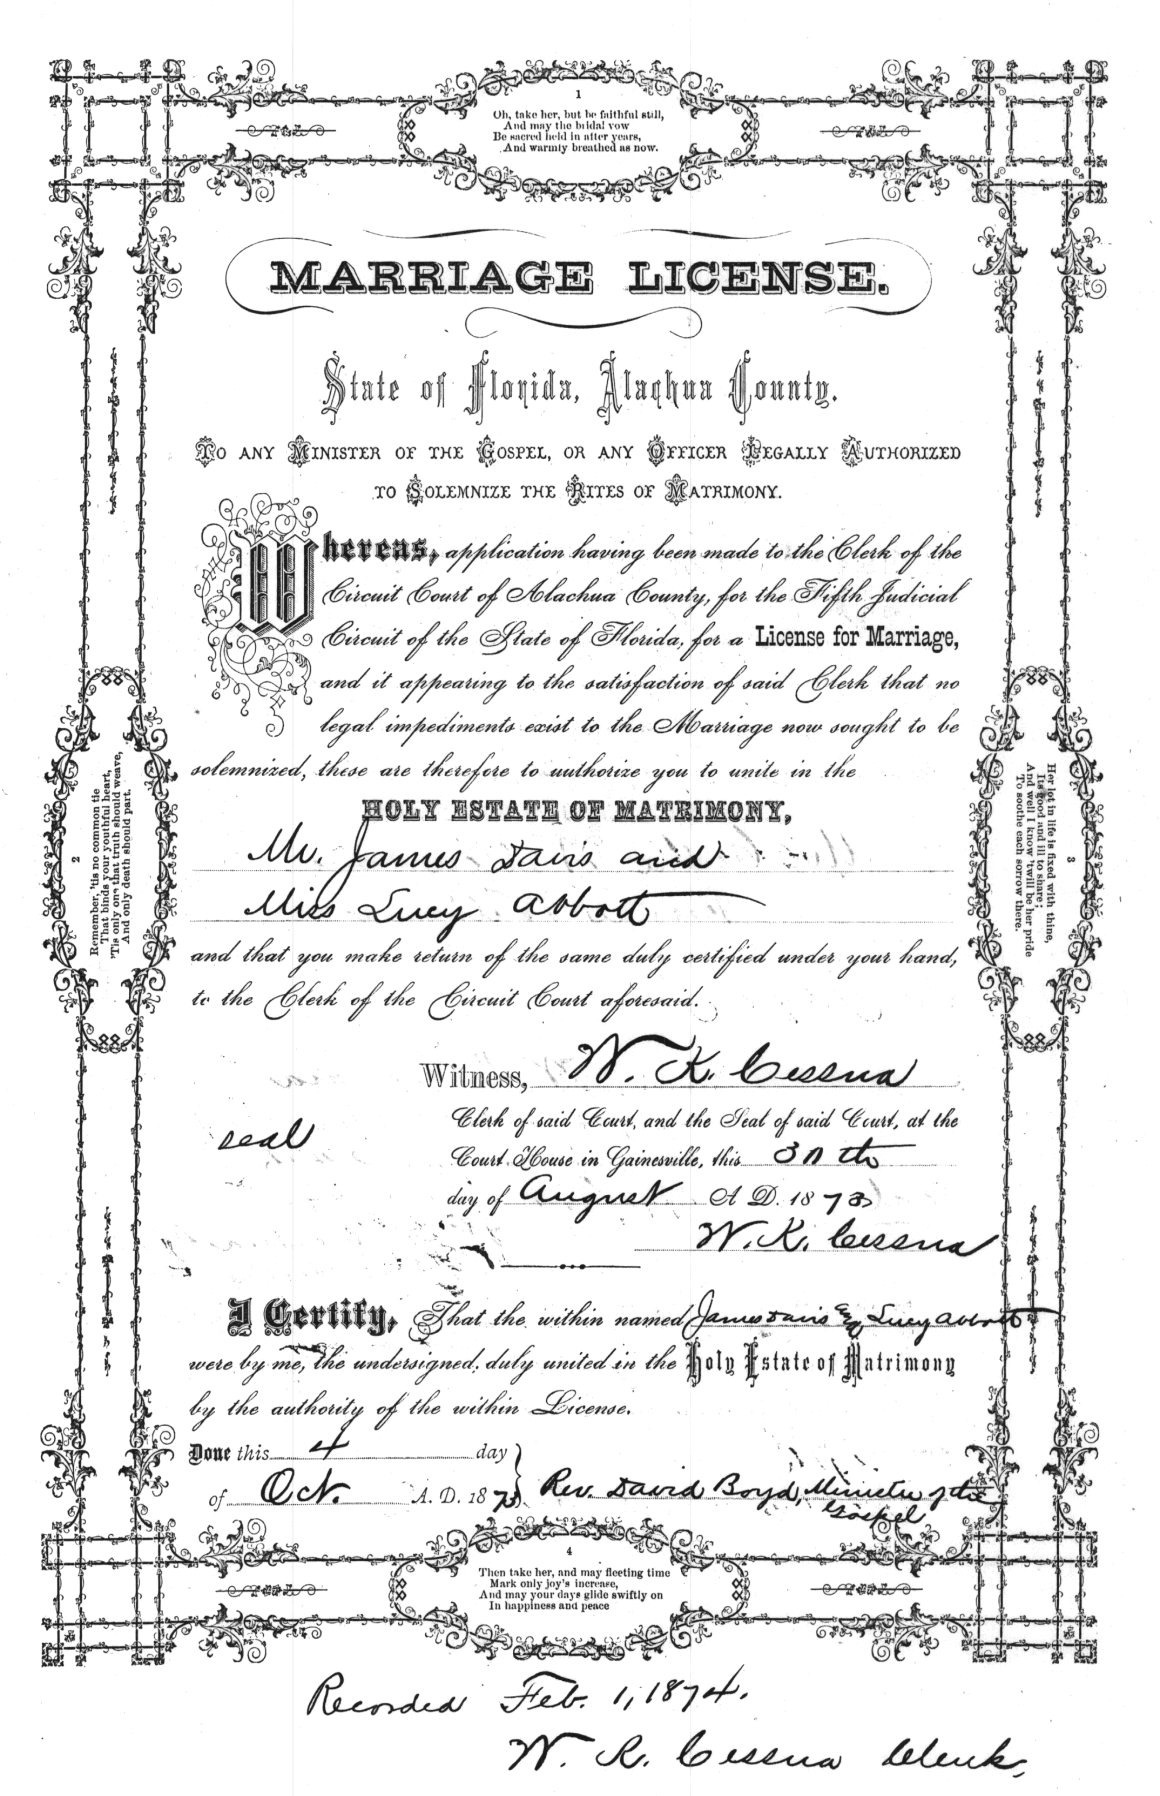 1
Oh, take her, but be faithful still,
And may the bridal vow
Be sacred held in after years,
And warmly breathed as now.
MARRIAGE LICENSE.
State of Florida, Alachua County.
TO ANY MINISTER OF THE GOSPEL, OR ANY OFFICER LEGALLY AUTHORIZED
TO SOLEMNIZE THE RITES OF MATRIMONY.
Whereas, application having been made to the Clerk of the
Circuit Court of Alachua County, for the Fifth Judicial
Circuit of the State of Florida, for a License for Marriage,
and it appearing to the satisfaction of said Clerk that no
legal impediments exist to the Marriage now sought to be
solemnized, these are therefore to authorize you to unite in the
HOLY ESTATE OF MATRIMONY,
Mr. James Davis and
Miss Lucy Abbott
and that you make return of the same duly certified under your hand,
to the Clerk of the Circuit Court aforesaid.
Witness, W. K. Cessna
Clerk of said Court, and the Seal of said Court, at the
seal
Court House in Gainesville, this 30th
day of August A. D. 1873
W. K. Cessna
I Certify, That the within named James Davis & Lucy Abbott
were by me, the undersigned, duly united in the Holy Estate of Matrimony
by the authority of the within License.
Done this 4 day
of Oct. A. D. 1873 Rev. David Boyd, Minister of the
Gospel
2
Remember, 'tis no common tie
That binds your youthful heart,
'Tis only one that truth should weave,
And only death should part.
3
Her lot in life is fixed with thine,
Its good and ill to share;
And well I know 'twill be her pride
To soothe each sorrow there.
4
Then take her, and may fleeting time
Mark only joy's increase,
And may your days glide swiftly on
In happiness and peace
Recorded Feb. 1, 1874.
W. K. Cessna Clerk,